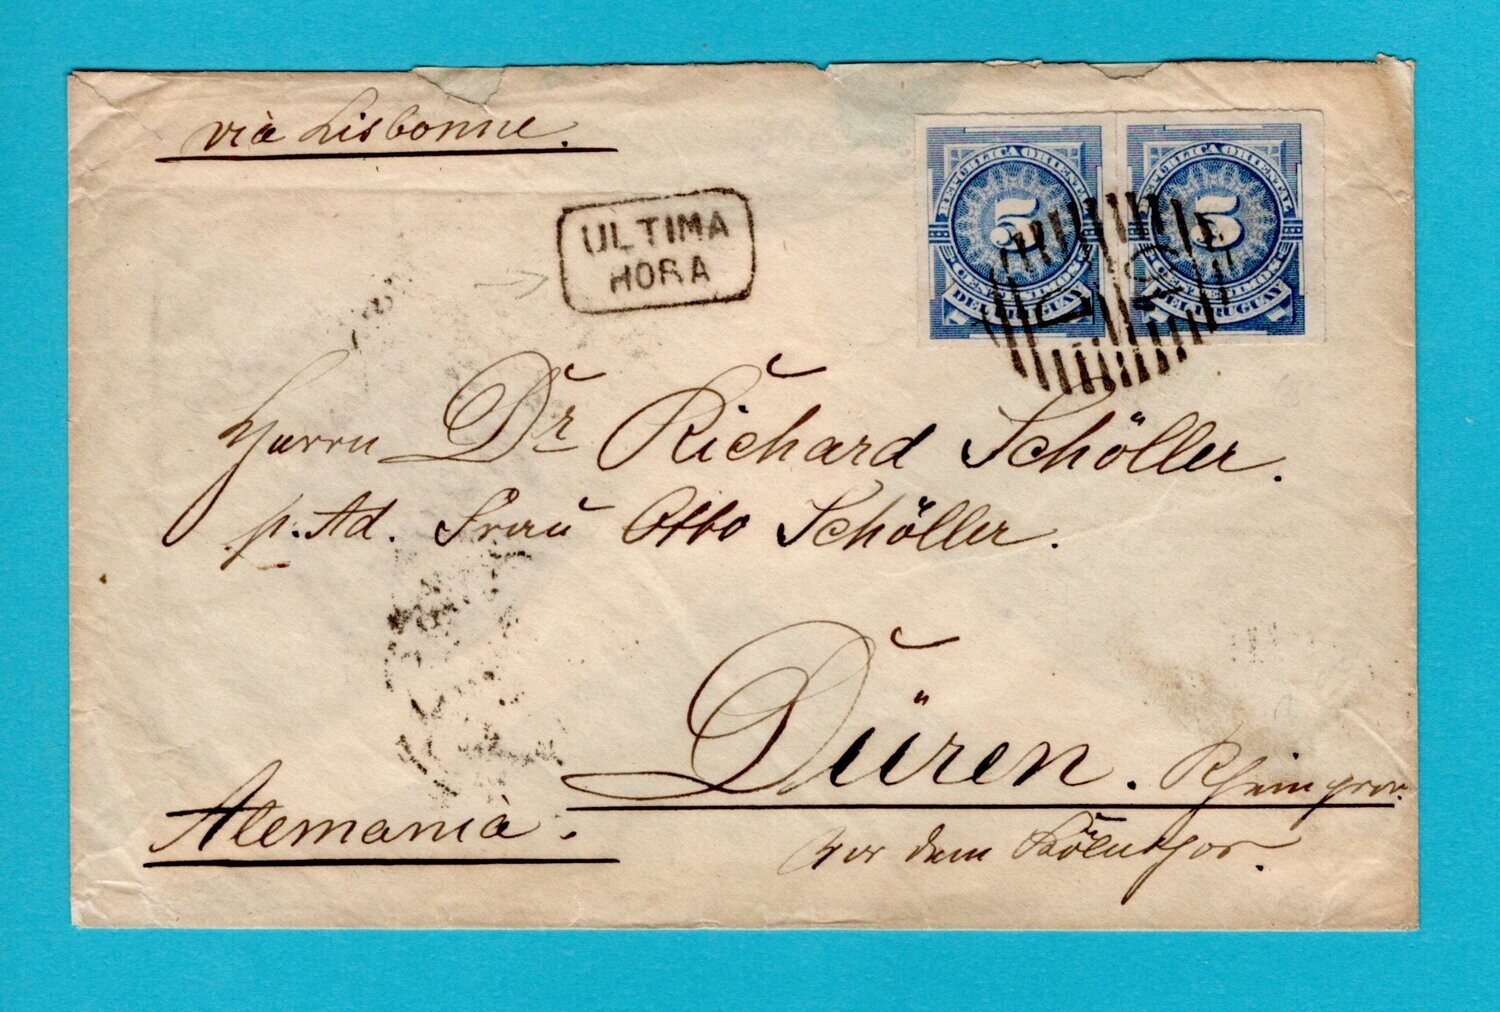 via Lisbonne.
ULTIMA
HORA
REPUBLICA ORIENTAL
5
5 CENTESIMOS 5
DEL URUGUAY
REPUBLICA ORIENTAL
5
5 CENTESIMOS 5
DEL URUGUAY
Herrn Dr Richard Schöller.
p. Ad. Frau Otto Schöller.
Düren. Rheinprov.
vor dem Kölnthor.
Alemania.